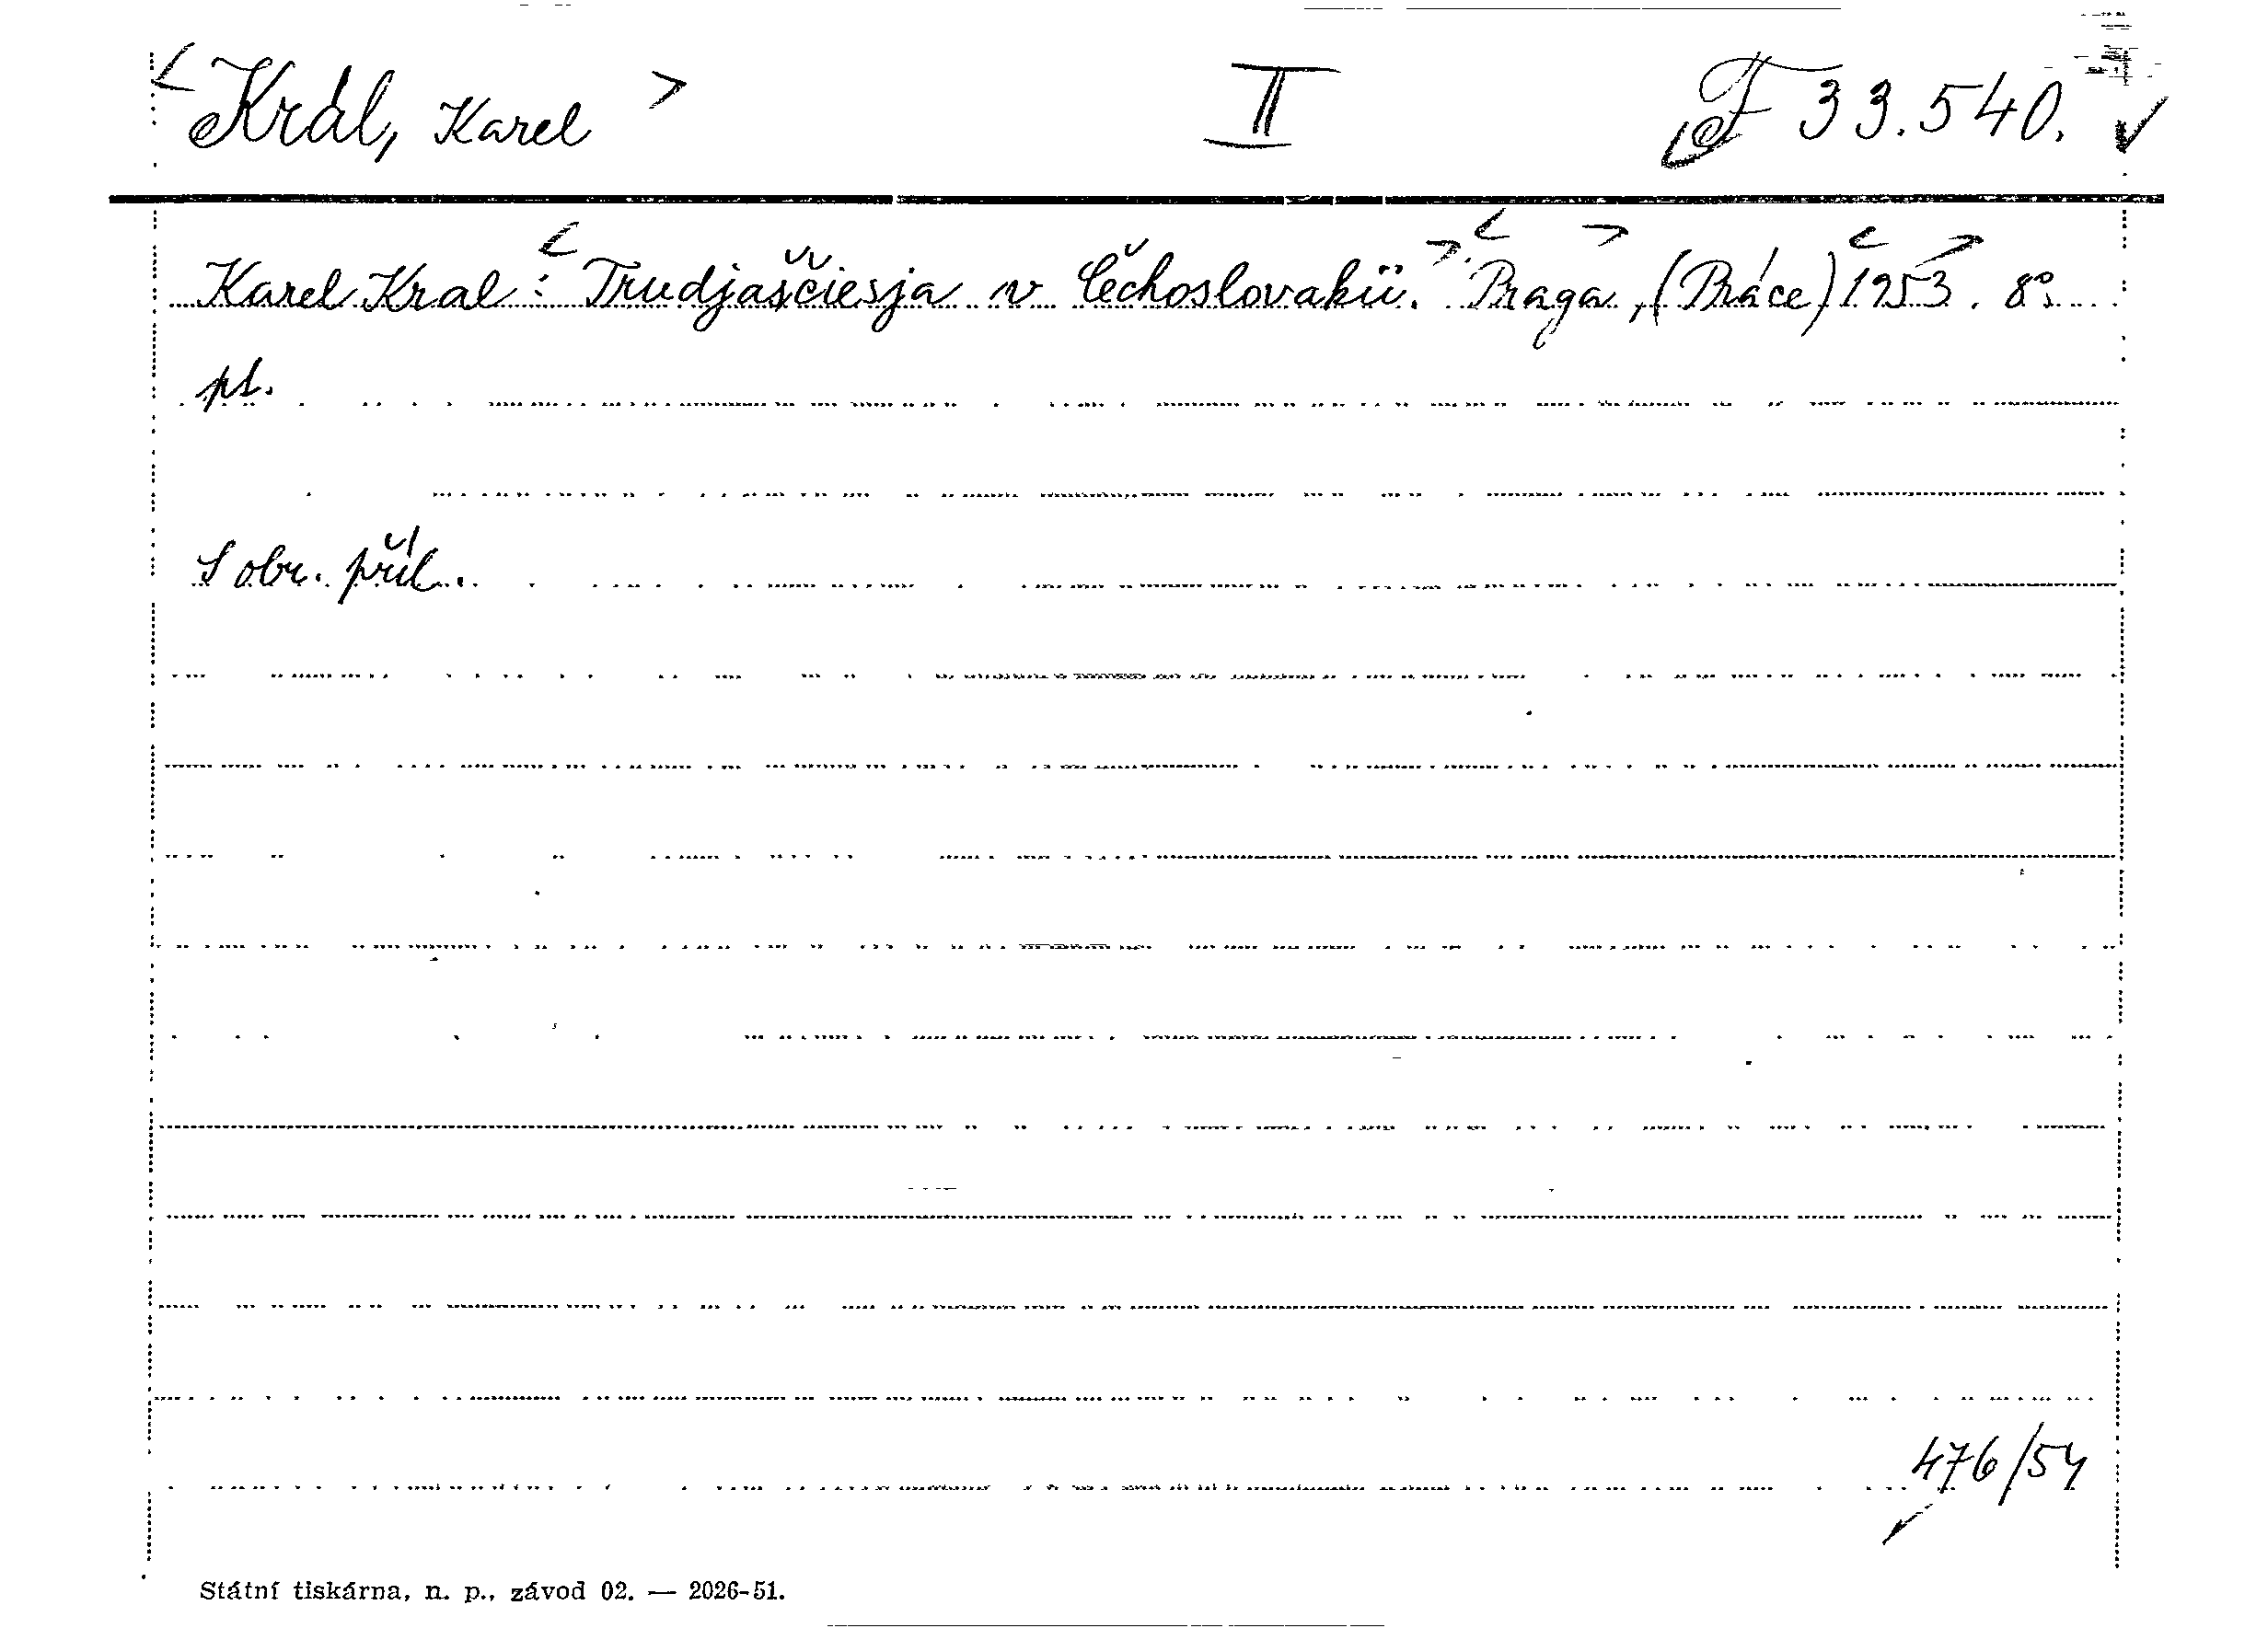 Král, Karel II F 33.540.
Karel Kral: Trudjaščiesja v Čechoslovakii. Praga, (Práce) 1953. 8°.
pt.
S obr. příl.
476/54
Státní tiskárna, n. p., závod 02. — 2026-51.